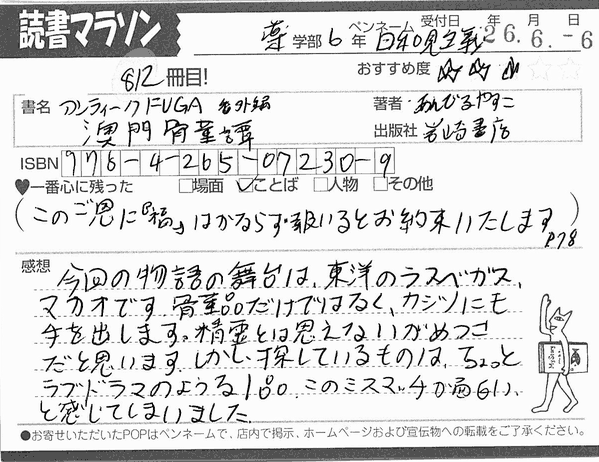 読書マラソン
薬 学部 6 年 ペンネーム 日和見主義 受付日 年 月 日
26.6.-6
812 冊目! おすすめ度 ☆☆☆☆☆
書名 アンティークFUGA 番外編 著者・あんびるやすこ
澳門骨董譚 出版社 岩崎書店
ISBN 978-4-265-07230-9
♥一番心に残った □場面 ☑ことば □人物 □その他
(このご恩に『稿』はかならず報いるとお約束いたします)
P78
感想 今回の物語の舞台は、東洋のラスベガス、
マカオです。骨董品だけではなく、カジノにも
手を出します。精霊とは思えないがめつさ
だと思います。しかし探しているものは、ちょっと
ラブドラマのような1品。このミスマッチが面白い、
と感じてしまいました
●お寄せいただいたPOPはペンネームで、店内で掲示、ホームページおよび宣伝物への転載をご了承ください。